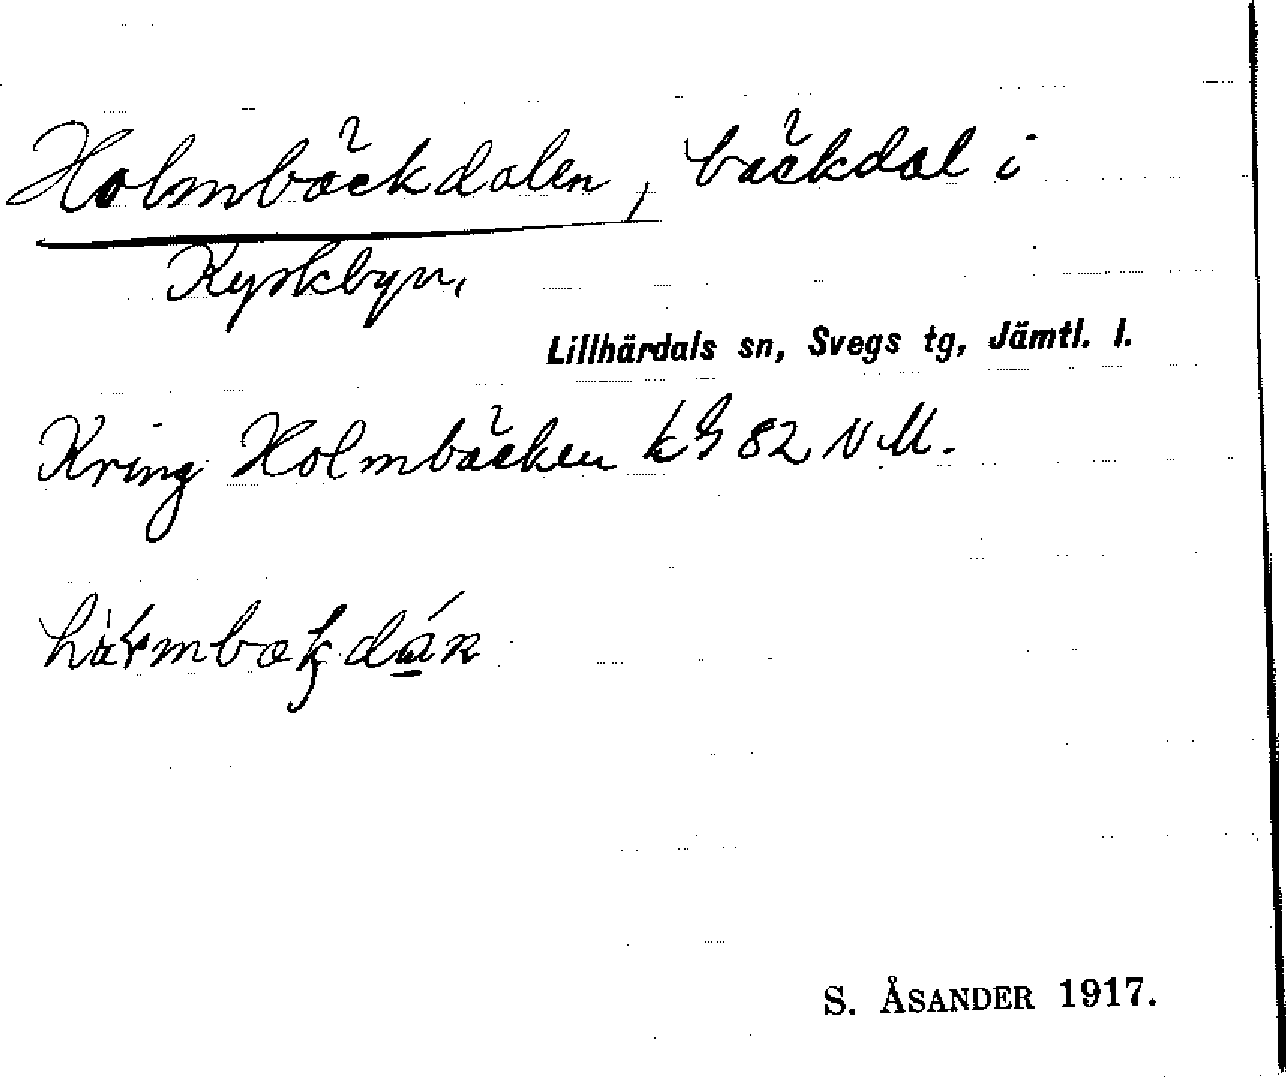 Holmbäckdalen, bäckdal i
Kyrkbyn,
Lillhärdals sn, Svegs tg, Jämtl. l.
Kring Holmbäcken k 82 N M.
S. ÅSANDER 1917.